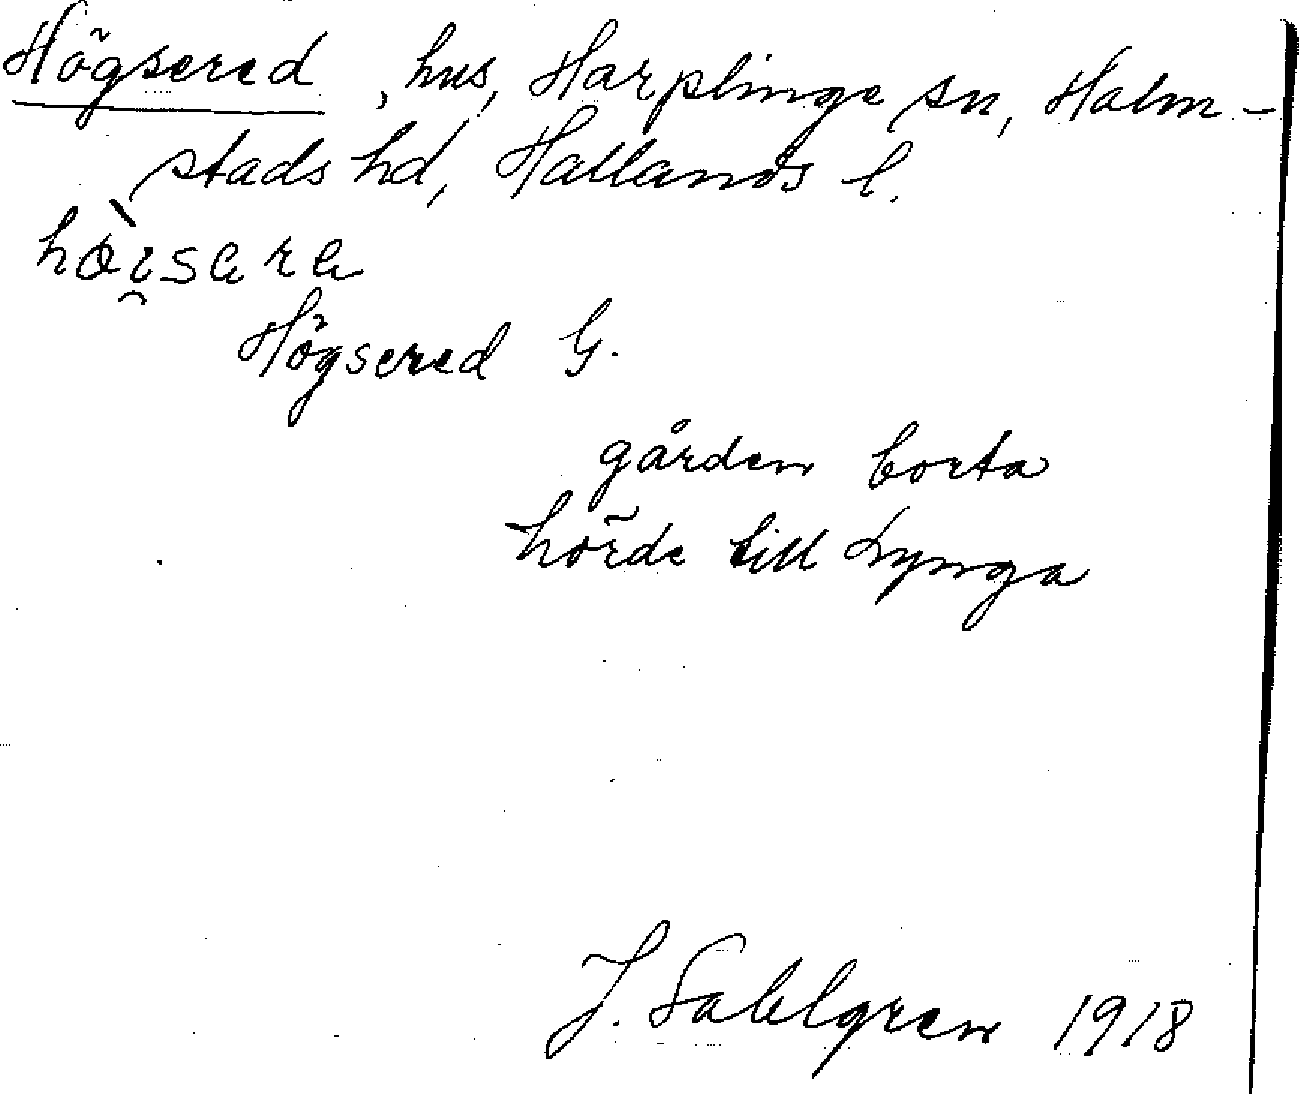 Högsered, hus, Harplinge sn, Halm-
stads hd, Hallands l.
hø̀i̯sara
Högsered G.
gården borta
hörde till Lynga
J. Sahlgren 1918